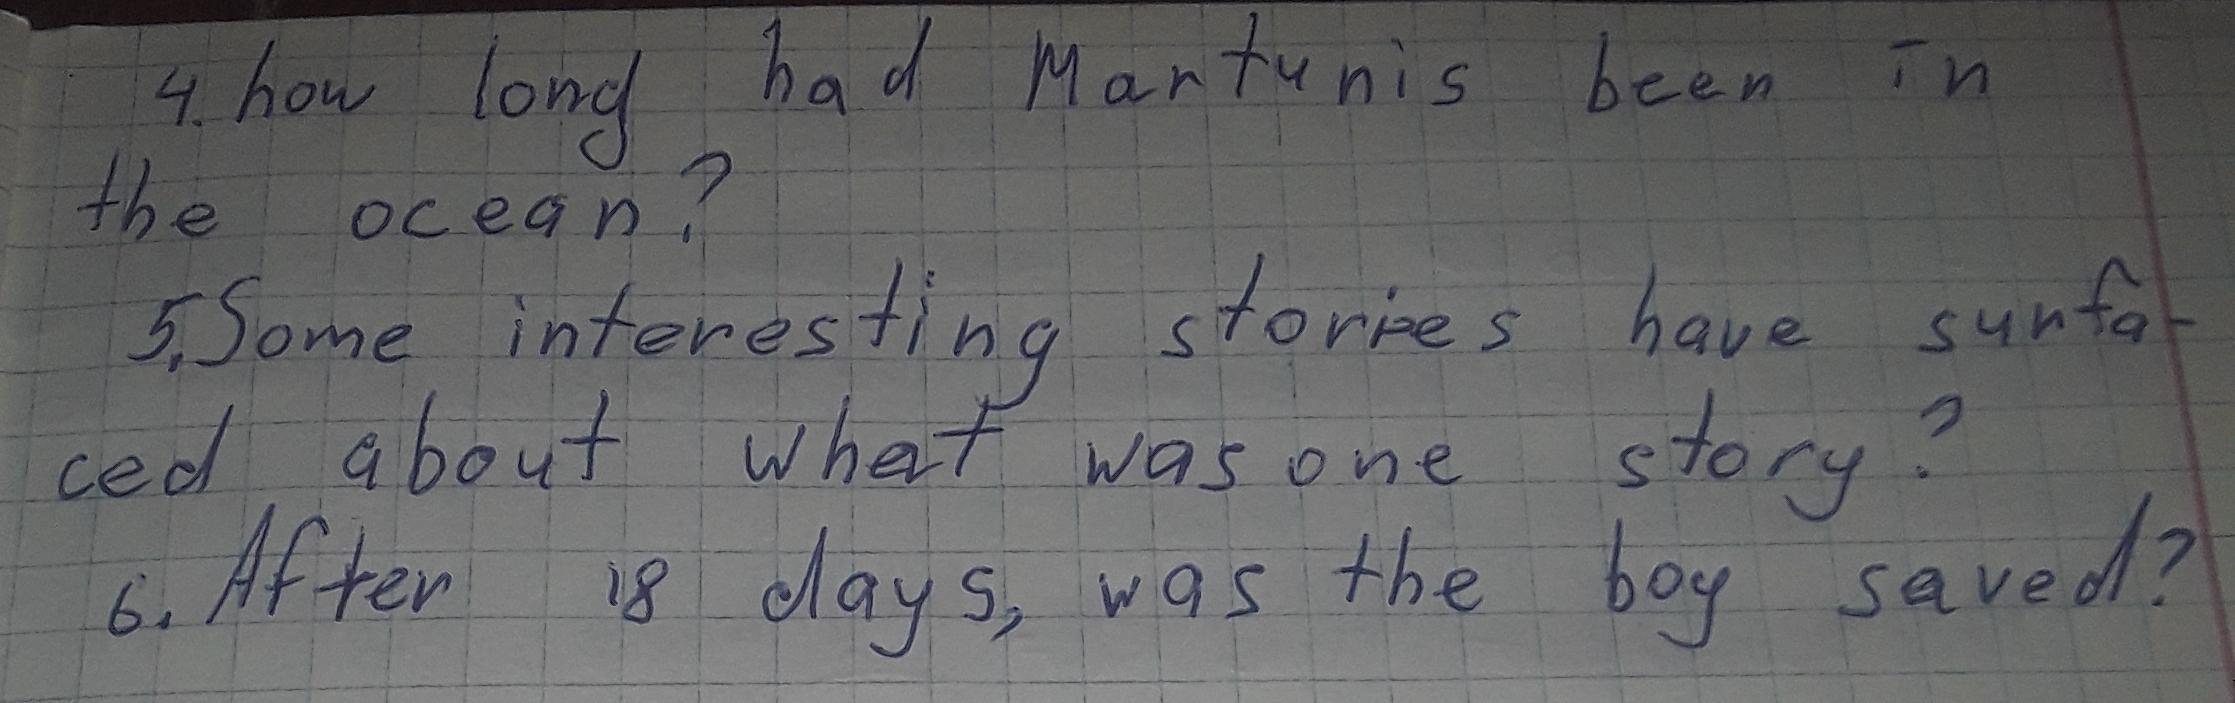 4. how long had Martunis been in
the ocean?
5. Some interesting stories have surfa-
ced about what was one story?
6. After 18 days, was the boy saved?